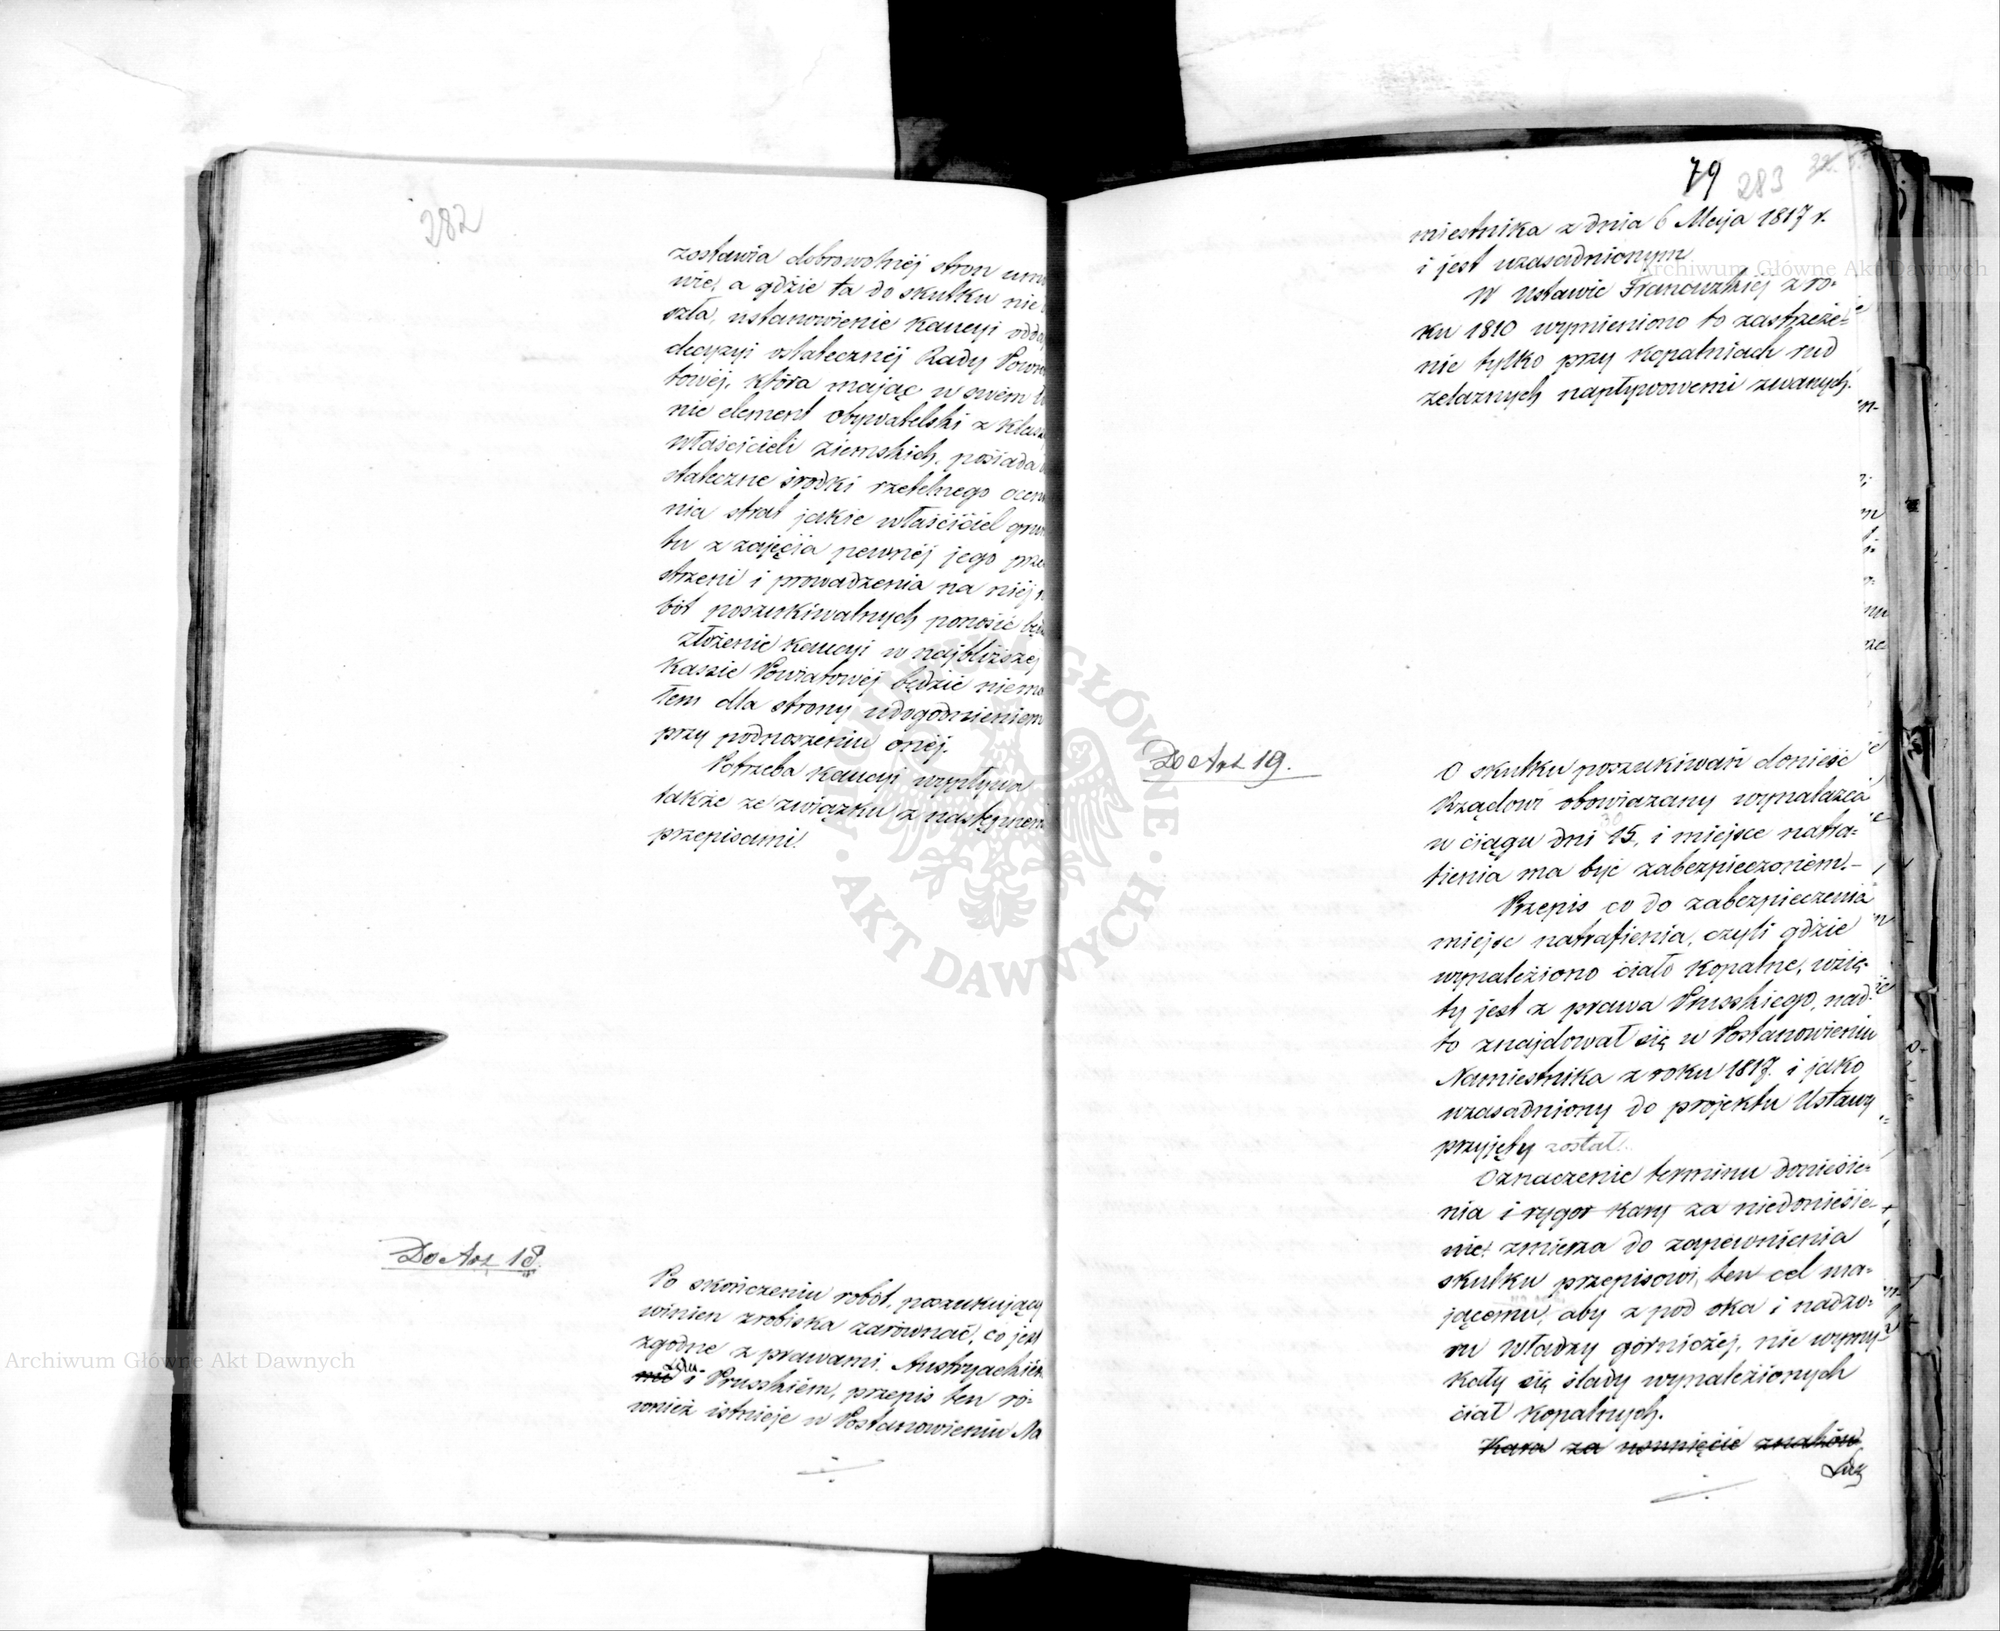 282
zostawia dobrowolnéj stron umo
wie, a gdzie ta do skutku nie
szła, ustanowienie kaucyi odda
decyzyi ostatecznéj Rady Powia
towéj, która mając w swém
nie element obywatelski z klassy
właścicieli ziemskich, posiada
stateczne środki rzetelnego oceni
nia strat jakie właściciel grun
tu z zajęcia pewnéj jego prze
strzeni i prowadzenia na niéj r
bót poszukiwalnych ponosić będ
złożenie kaucyi w najbliższej
Kassie Powiatowéj będzie niema
łem dla strony udogodnieniem
przy podnoszeniu onéj.
Potrzeba kaucyi wypływa
także ze związku z następnemi
przepisami.
Do Art 18.
Po skończeniu robót, poszukujący
winien zrobiska zarównać, co jest
zgodne z prawami Austryackiém
i Prusskiém, przepis ten ró-
wnież istnieje w Postanowieniu Na
79 283
miestnika z dnia 6 Maja 1817 r.
i jest uzasadnionym
W Ustawie Francuzkiéj z ro-
ku 1810 wymieniono to zastrzeże-
nie tylko przy kopalniach rud
żelaznych napływowemi zwanych.
Do Art 19.
O skutku poszukiwań donieść
Rządowi obowiązany wynalazca
30
w ciągu dni 15, i miejsce natra-
fienia ma być zabezpieczoném.-
Przepis co do zabezpieczenia
miejsc natrafienia, czyli gdzie
wynaleziono ciało kopalne, wzię-
ty jest z prawa Prusskiego, nad-
to znajdował się w Postanowieniu
Namiestnika z roku 1817 i jako
uzasadniony do projektu Ustawy
przyjęty został.
Oznaczenie terminu doniesie-
nia i rygor kary za niedoniesie-
nie zmierza do zapewnienia
skutku przepisowi, ten cel ma-
jącemu, aby z pod oka i nadzo-
ru władzy górniczéj, nie wymy
kały się ślady wynalezionych
ciał kopalnych.
Kara za usunięcie znaków
Archiwum Główne Akt Dawnych
Archiwum Główne Akt Dawnych
ARCHIWUM GŁÓWNE · AKT DAWNYCH ·